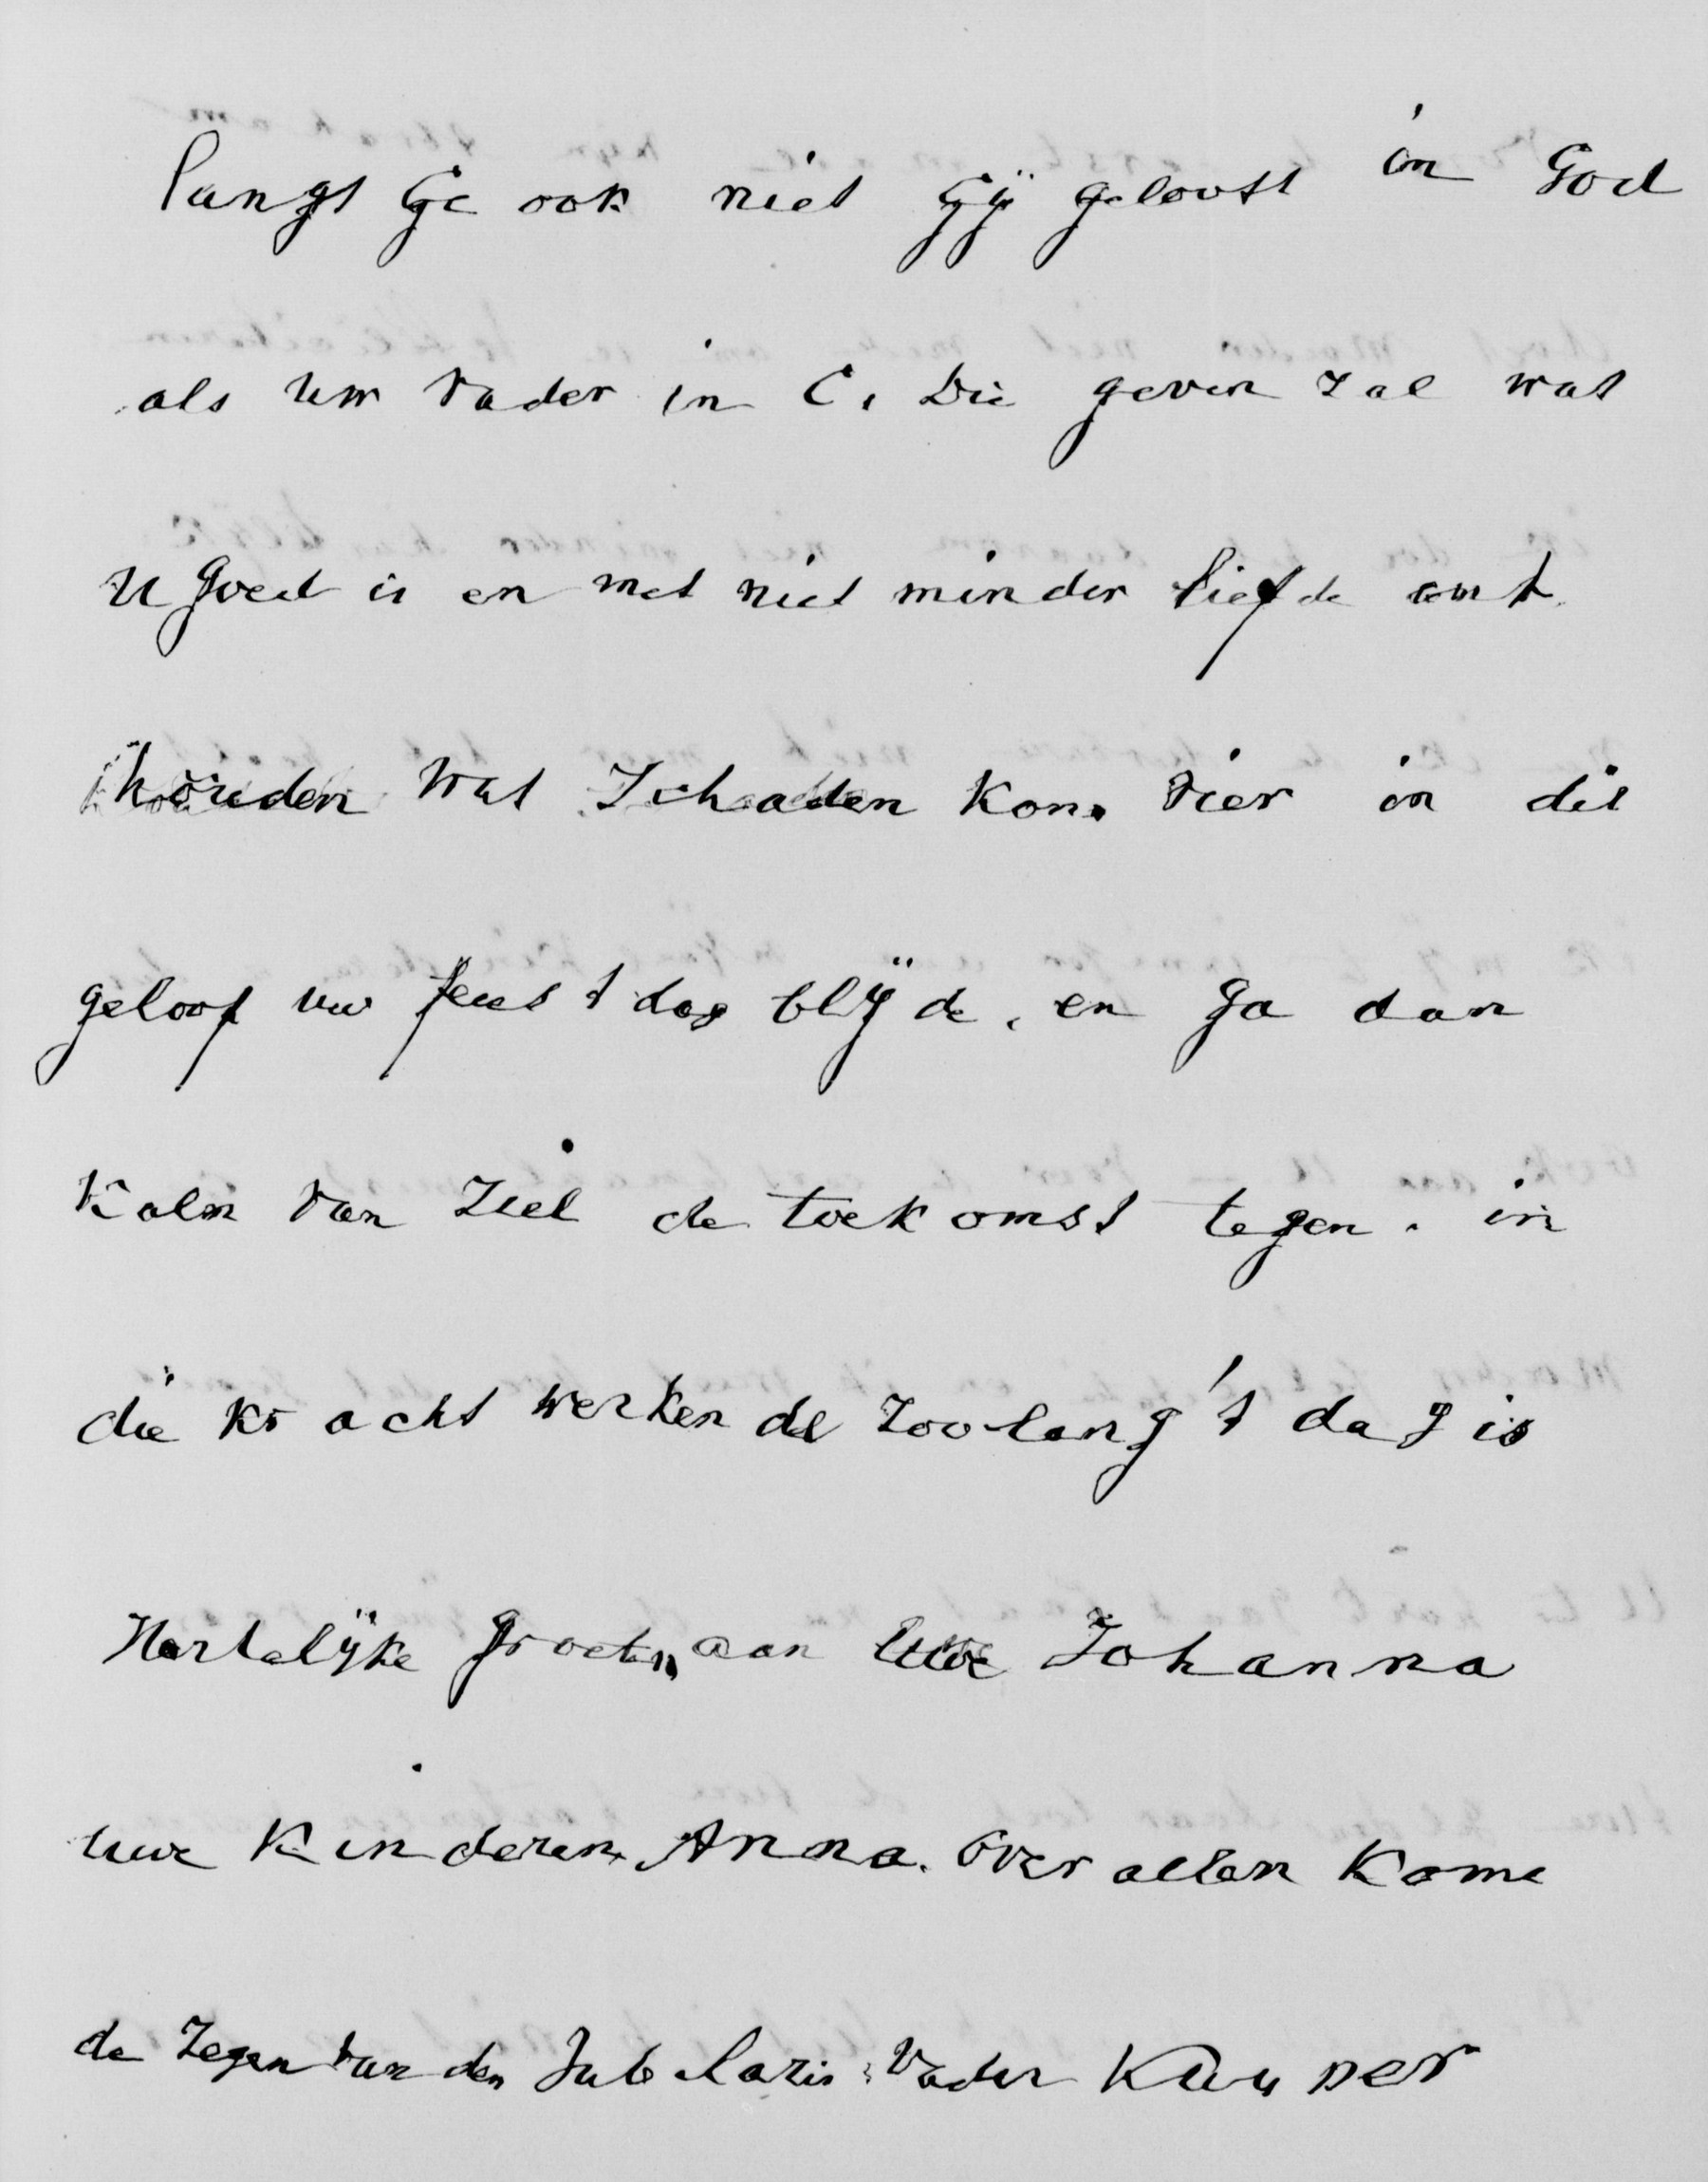 langt Ge ook niet Gÿ gelooft in God
als Uw Vader in C. Die geven zal wat
U goed is en met niet minder liefde ont
houden wat Schaden kon. Vier in dit
geloof uw feestdag blÿde. en ga dan
Kalm van Ziel de toekomst tegen. in
die kracht werkende zoolang 't dag is
Hartelÿke groeten aan Uwe Johanna
uwe Kinderen Anna. Over allen Kome
de Zegen van den Jubelaris. Vader Kuyper